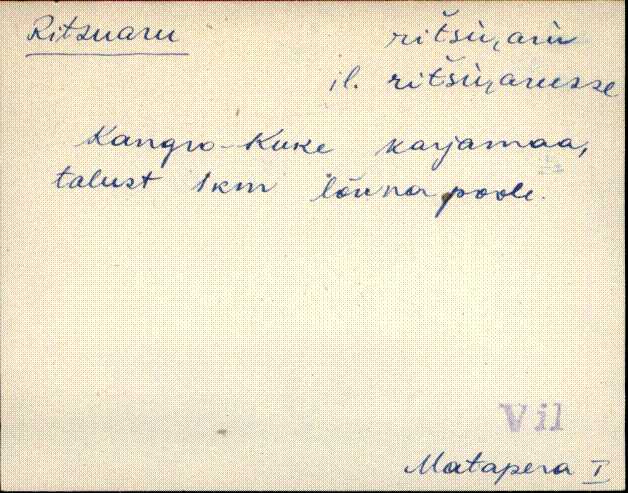 Ritsuaru ritšu, aru
il. ritšu, arusse
Kangro-Kuke karjamaa,
talust 1 km lõuna poole.
Vil
Matapera I